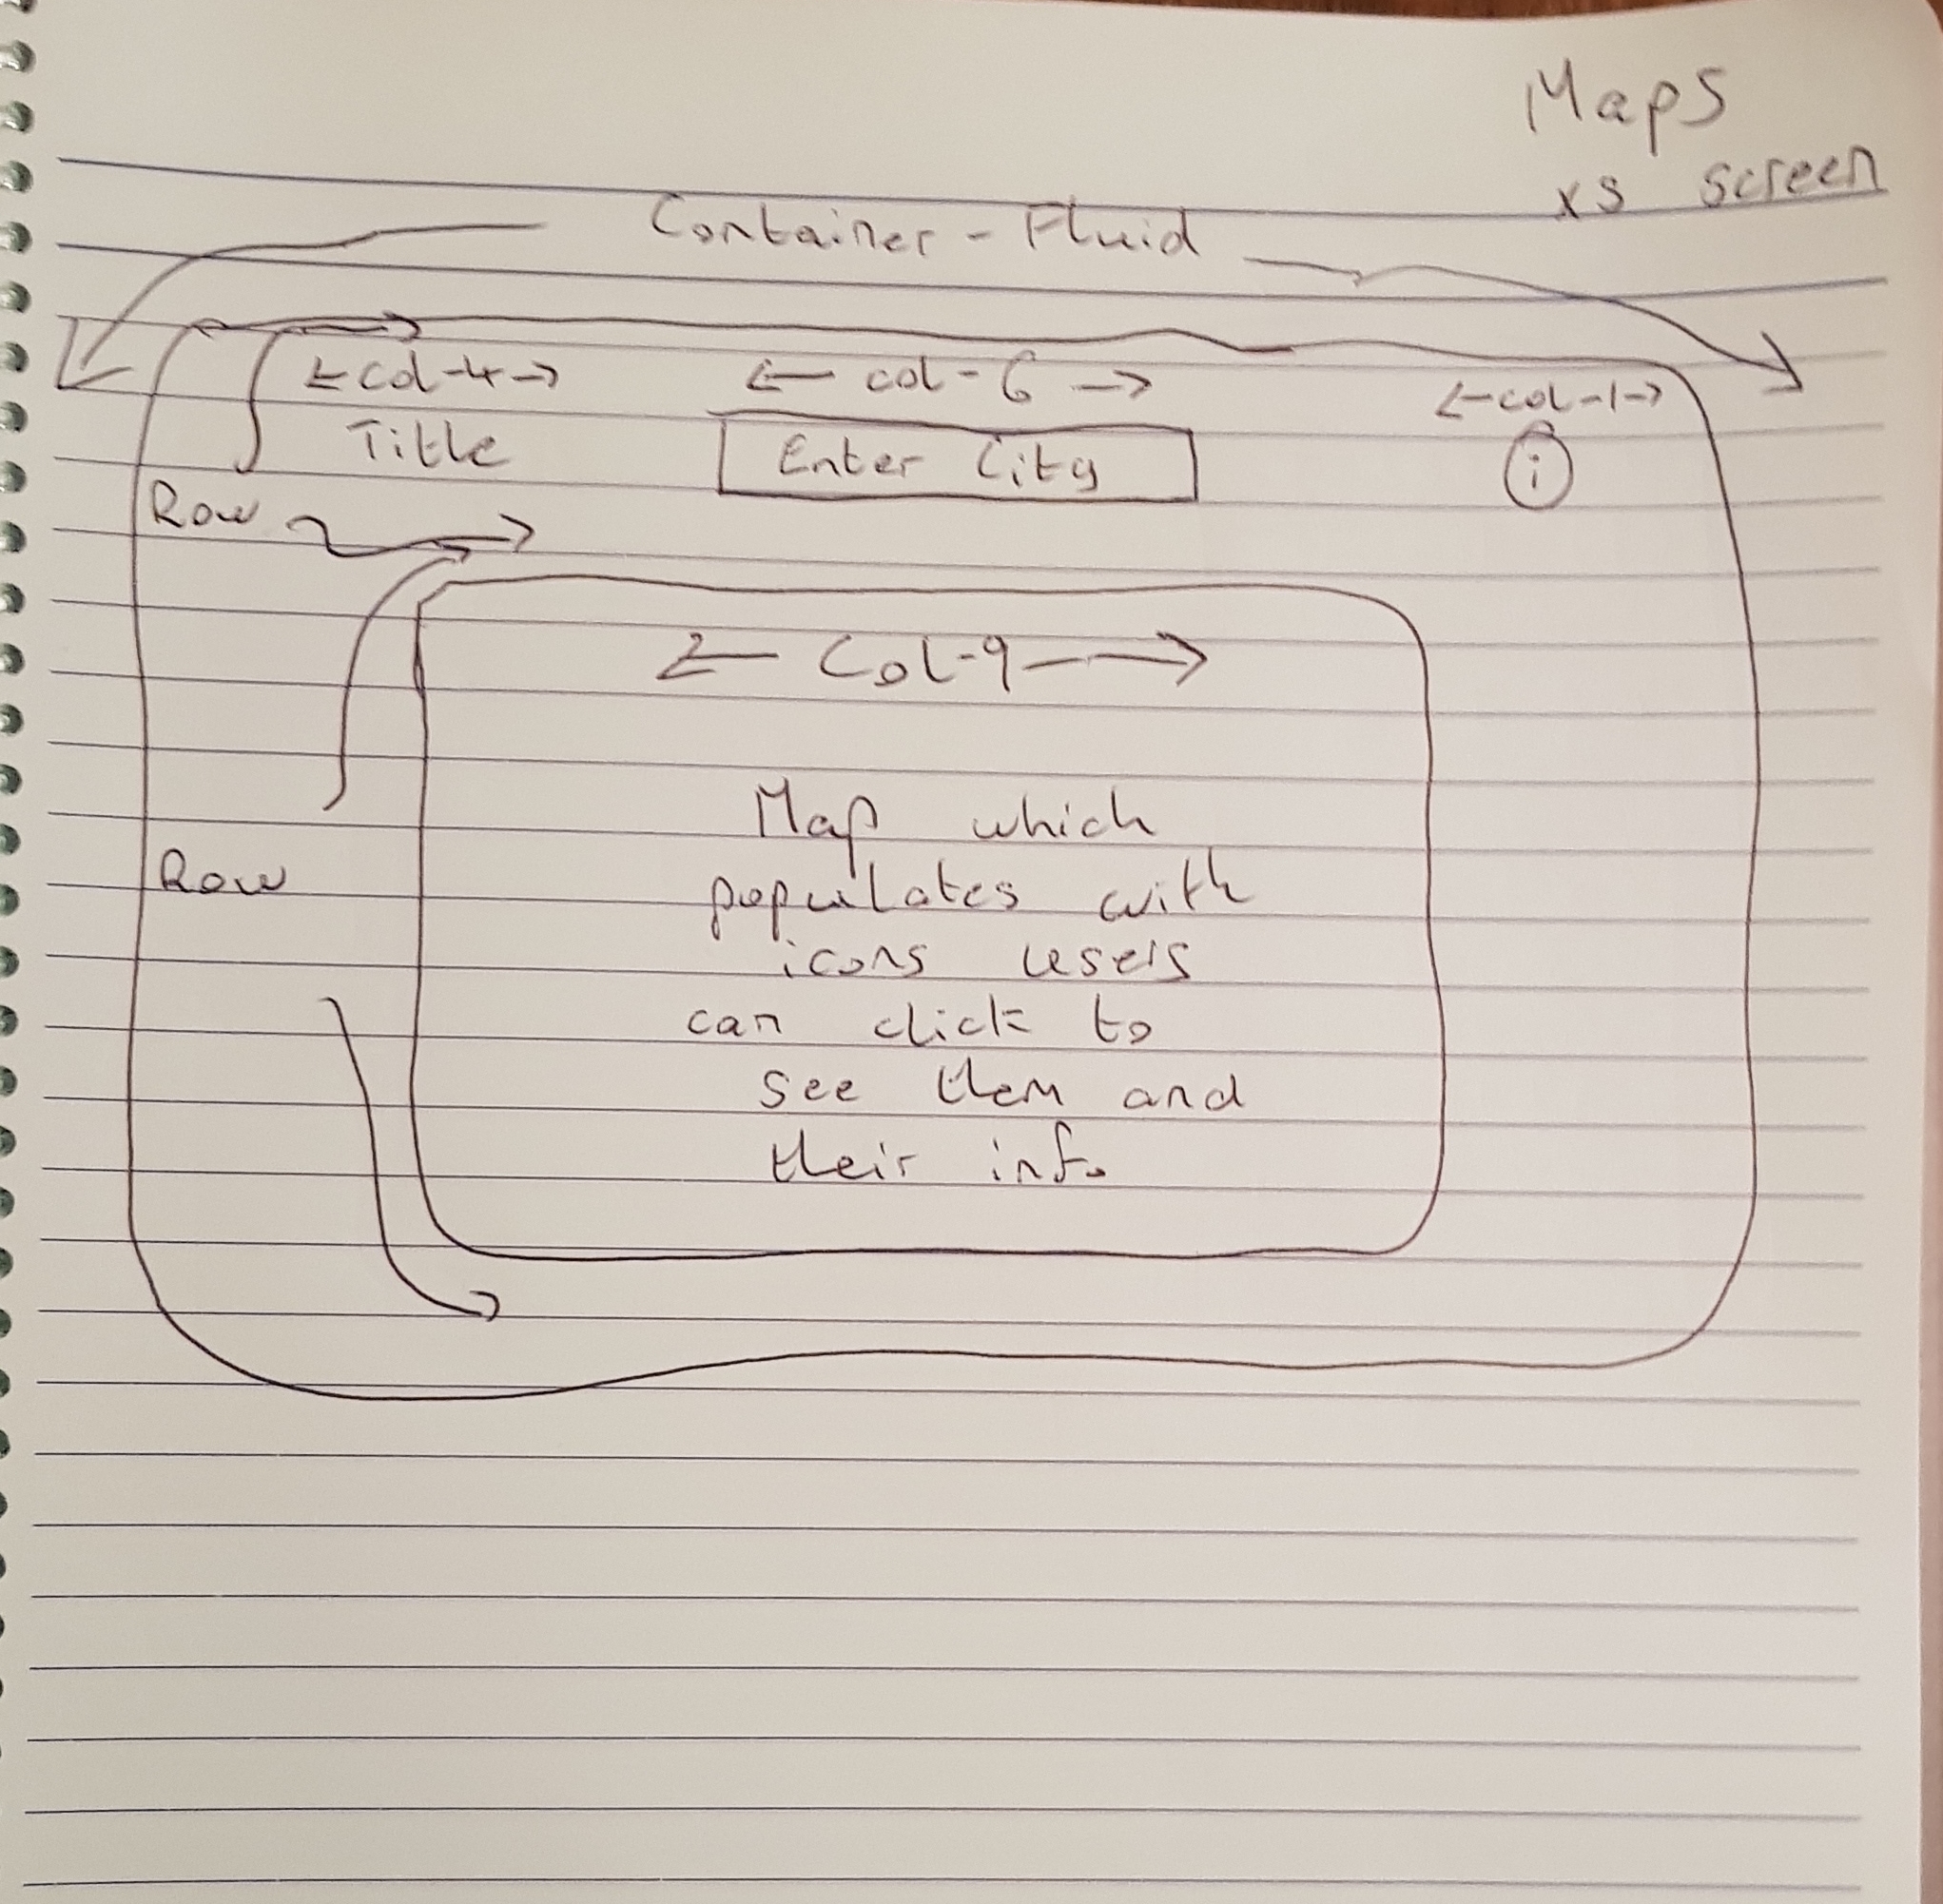 Maps
xs screen
Container - Fluid
col-4 col-6 col-1
Title Enter City i
Row
Col-9
Map which
populates with
Row
icons users
can click to
see them and
their info